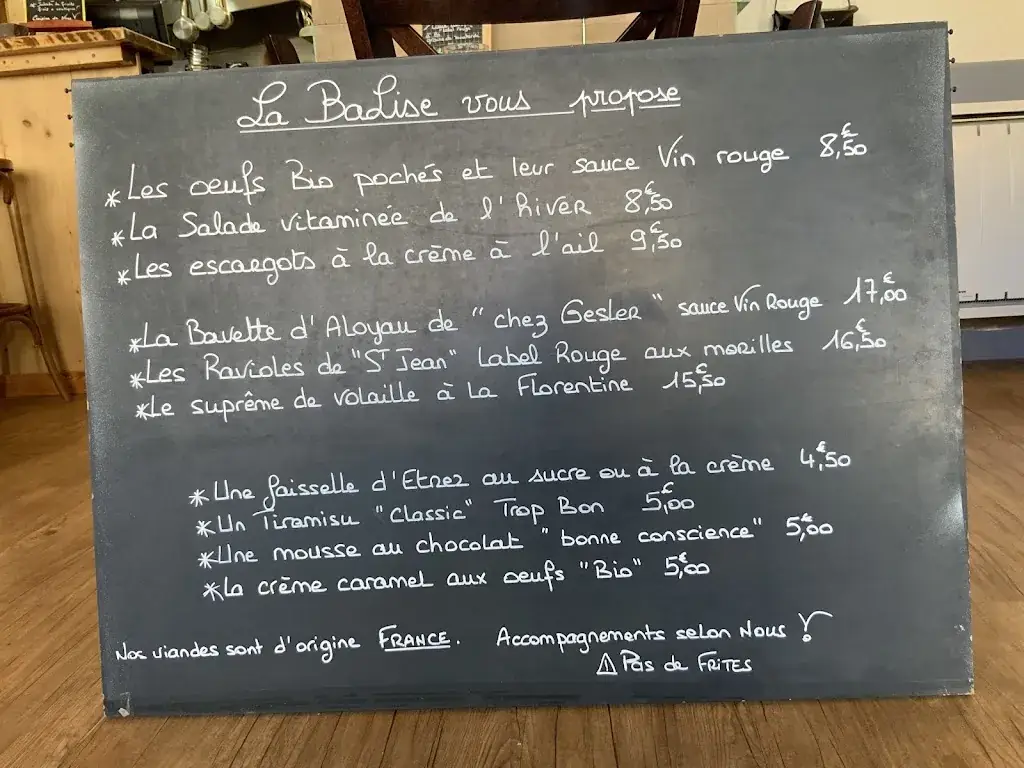 La Balise vous propose
* Les oeufs Bio pochés et leur sauce Vin rouge 8,50€
* La Salade vitaminée de l'hiver 8,50€
* Les escargots à la crème à l'ail 9,50€
* La Bavette d'Aloyau de "chez Gesler" sauce Vin Rouge 17,00€
* Les Ravioles de "St Jean" Label Rouge aux morilles 16,50€
* Le suprême de volaille à La Florentine 15,50€
* Une faisselle d'Etrez au sucre ou à la crème 4,50€
* Un Tiramisu "Classic" Trop Bon 5,00€
* Une mousse au chocolat "bonne conscience" 5,00€
* La crème caramel aux oeufs "Bio" 5,00€
Nos viandes sont d'origine FRANCE. Accompagnements selon Nous !
⚠ Pas de FRITES